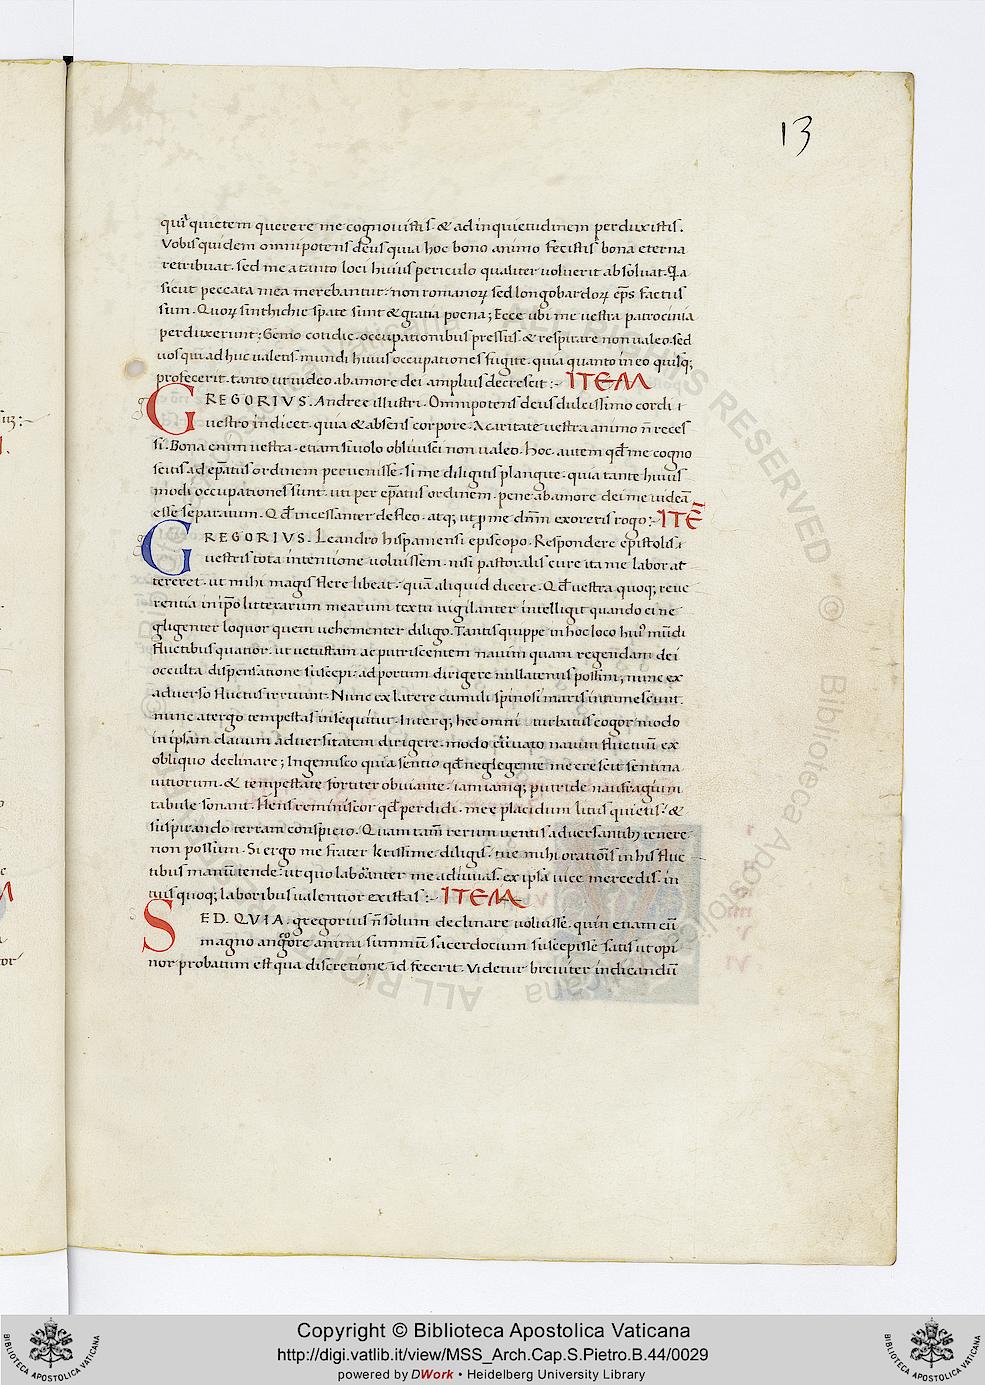 13
qui quietem querere me cognouistis. & ad inquietudinem perduxistis.
Vobis quidem omnipotens deus quia hoc bono animo fecistis bona eterna
retribuat. sed me a tanto loci huius periculo qualiter uoluerit absoluat. Qa
sicut peccata mea merebantur. non romanoꝝ sed longobardoꝝ ep̄s factus
sum. Quoꝝ sinthichie spate sunt & gratia poena; Ecce ubi me uestra patrocinia
perduxerunt; Gemo cotidie. occupationibus pressus. & respirare non ualeo. sed
uos qui adhuc ualetis. mundi huius occupationes fugite. quia quanto in eo quisq;
profecerit. tanto ut uideo ab amore dei amplius decrescit:- ITEM
GREGORIVS. Andree illustri. Omnipotens deus dulcissimo cordi
uestro indicet. quia & absens corpore. A caritate uestra animo n̄ reces
si. Bona enim uestra. etiam si uolo obliuisci non ualeo. Hoc. autem qd̄ me cogno
scitis ad ep̄atus ordinem peruenisse. si me diligitis plangite. quia tante huius
modi occupationes sunt. uti per ep̄atus ordinem. pene ab amore dei me uideā
esse separatum. Qd̄ incessanter defleo. atq; ut p̱ me dn̄m exoretis rogo:- ITĒ
GREGORIVS. Leandro hispaniensi episcopo. Respondere epistolis
uestris tota intentione uoluissem. nisi pastoralis cure ita me labor at
tereret. ut mihi magis flere libeat. quā aliquid dicere. Qd̄ uestra quoq; reue
rentia in ip̄o litterarum mearum textu uigilanter intelligit quando ei ne
gligenter loquor quem uehementer diligo. Tantis quippe in hoc loco hui' mūdi
fluctibus quatior. ut uetustam ac putriscentem nauim quam regendam dei
occulta dispensatione suscepi. ad portum dirigere nullatenus possim; nunc ex
aduerso fluctus irruunt. Nunc ex latere cumuli spumosi maris intumescunt.
nunc a tergo tempestas insequitur. Interq; hec omnia turbatus cogor modo
in ipsam clauum aduersitatem dirigere. modo curuato nauim fluctuū ex
obliquo declinare; Ingemisco quia sentio qd̄ neglegente me crescit sentina
uitiorum. & tempestate fortiter obuiante. iam iamq; putride naufragium
tabule sonant. Flens reminiscor qd̄ perdidi. mee placidum litus quietis. &
suspirando terram conspicio. Quam tam̄ rerum uentis aduersantib; tenere
non possum. Si ergo me frater k̄rissime diligis. tue mihi orationis in his fluc
tibus manū tende. ut quo laborāter me adiuuas. ex ipsa uice mercedis. in
tuis quoq; laboribus ualentior existas:- ITEM
SED. QVIA. gregorius n̄ solum declinare uoluisse. quin etiam cū
magno angore animi summū sacerdocium suscepisse satis ut opi
nor probatum est. qua discretione id fecerit. Videtur breuiter indicandū
Copyright © Biblioteca Apostolica Vaticana
http://digi.vatlib.it/view/MSS_Arch.Cap.S.Pietro.B.44/0029
powered by DWork • Heidelberg University Library